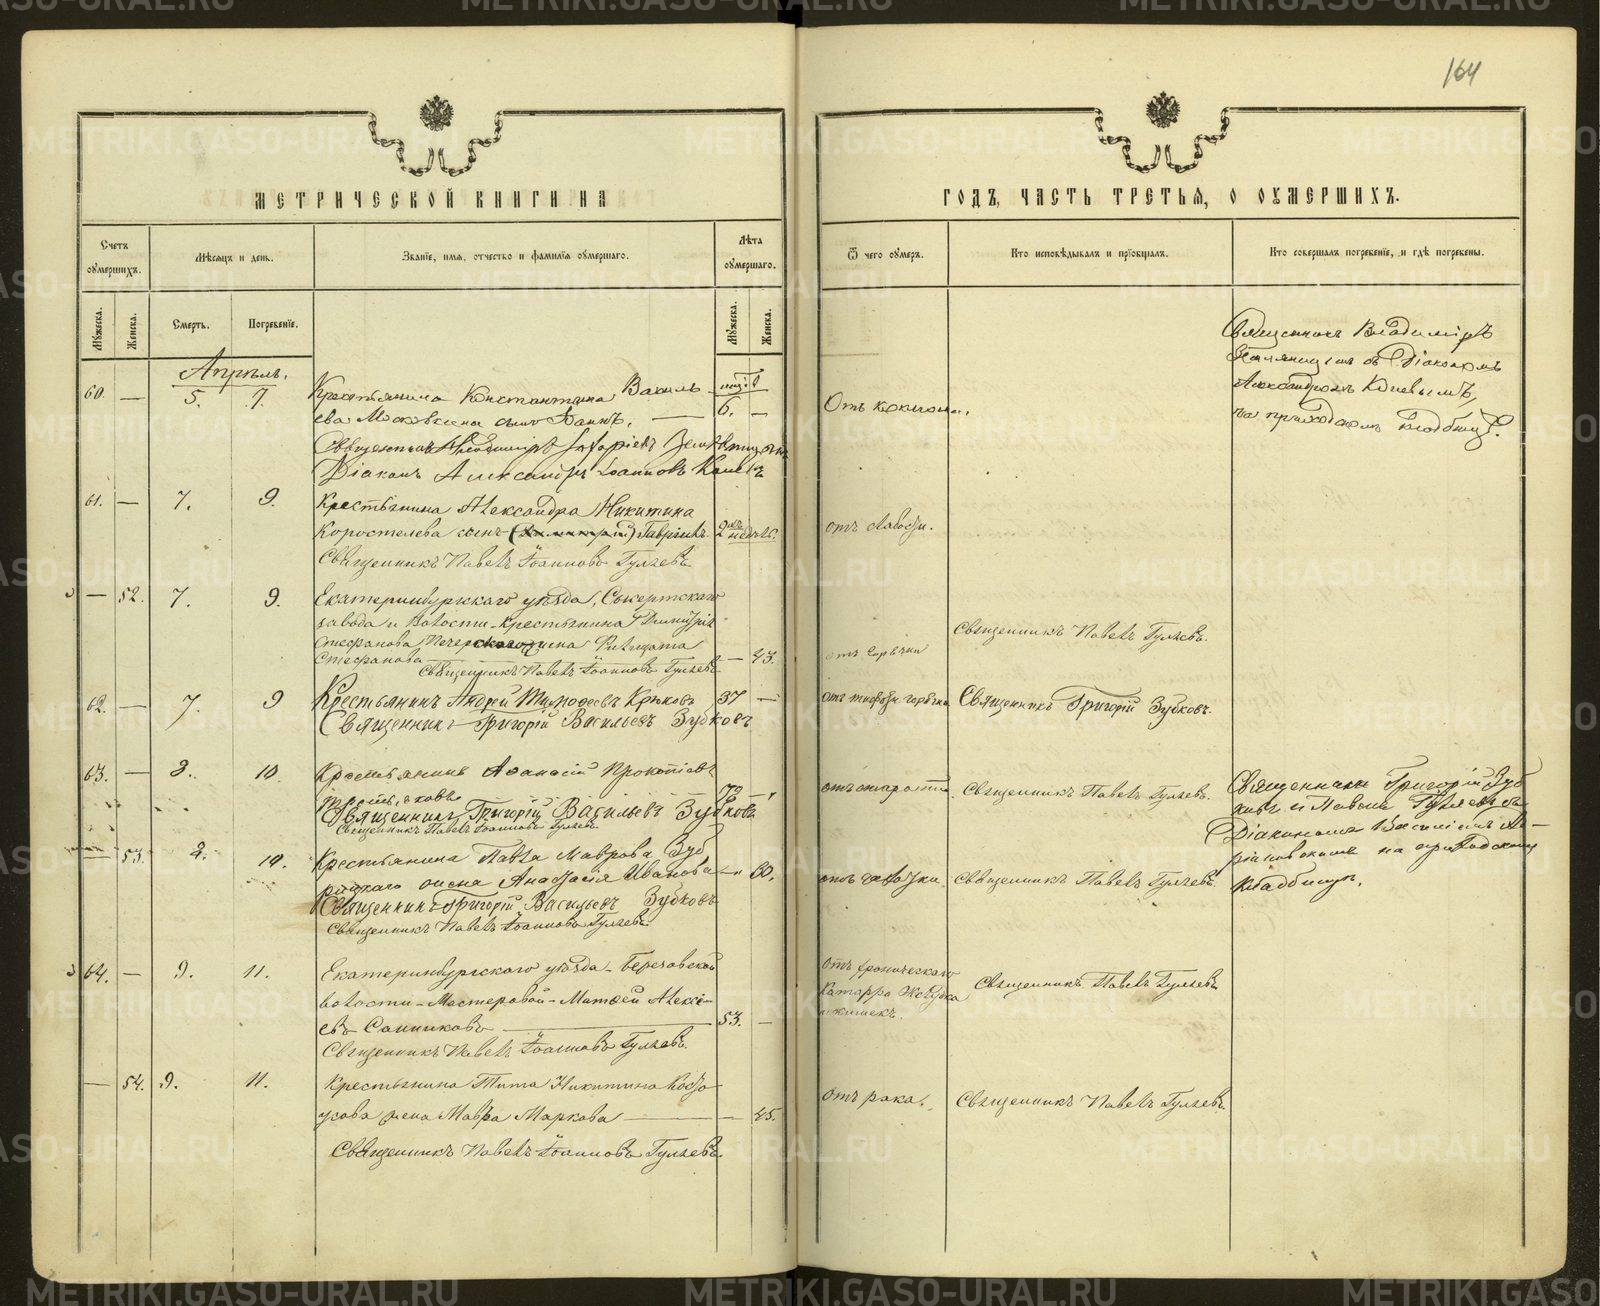 164
МЕТРИЧЕСКОЙ КНИГИ НА
ГОДЪ, ЧАСТЬ ТРЕТЬЯ, О ОУМЕРШИХЪ.
Счетъ оумершихъ.
Мѣсяцъ и день.
Званіе, имя, отчество и фамилія оумершаго.
Лѣта оумершаго.
Ѿ чего оумеръ.
Кто исповѣдывалъ и пріобщалъ.
Кто совершалъ погребеніе, и гдѣ погребены.
Мужеска.
Женска.
Смерть.
Погребеніе.
Мужеска.
Женска.
Апрѣль.
60. — 5. 7. Крестьянина Константина Василь
ева сынъ — 6. —
Отъ коклюша.
Священникъ Владиміръ
съ Діакономъ
Александромъ
на приходскомъ кладбищѣ.
Священникъ Владиміръ
Діаконъ Александръ Іоанновъ
61. — 7. 9. Крестьянина Александра Никитина
Коростелева сынъ Гавріилъ 2 недѣль.
отъ слабости.
Священникъ Павелъ Іоанновъ Гуляевъ
— 52. 7. 9. Екатеринбургскаго уѣзда, Сысертскаго
завода и волости крестьянина Димитрія
Стефанова жена
Стефанова — 43.
отъ горячки
Священникъ Павелъ Гуляевъ.
Священникъ Павелъ Іоанновъ Гуляевъ
62. — 7. 9 Крестьянинъ Андрей Тимофеевъ Крюковъ 37 —
отъ тифозн. горячки
Священникъ Григорій Зубковъ.
Священникъ Григорій Васильевъ Зубковъ
63. — 8. 10. Крестьянинъ Аѳанасій Прокопіевъ
70 —
отъ старости
Священникъ Павелъ Гуляевъ.
Священники Григорій Зуб
ковъ и Павелъ Гуляевъ съ
Діакономъ Василіемъ
на приходскомъ
кладбищѣ.
Священникъ Григорій Васильевъ Зубковъ
Священникъ Павелъ Іоанновъ Гуляевъ
— 53. 8. 10. Крестьянина Павла Маврова Зуб
рицкаго жена Анастасія Иванова — 60.
отъ чахотки.
Священникъ Павелъ Гуляевъ.
Священникъ Григорій Васильевъ Зубковъ
Священникъ Павелъ Іоанновъ Гуляевъ
64. — 9. 11. Екатеринбургскаго уѣзда Березовской
волости Мастеровой Матѳей Алексѣ
евъ Санниковъ — 53. —
Отъ хроническаго
катарра желудка
и кишекъ.
Священникъ Павелъ Гуляевъ
Священникъ Павелъ Іоанновъ Гуляевъ.
— 54. 9. 11. Крестьянина Тита Никитина Косо
усова жена Мавра Маркова — 45.
отъ рака.
Священникъ Павелъ Гуляевъ.
Священникъ Павелъ Іоанновъ Гуляевъ.
METRIKI.GASO-URAL.RU